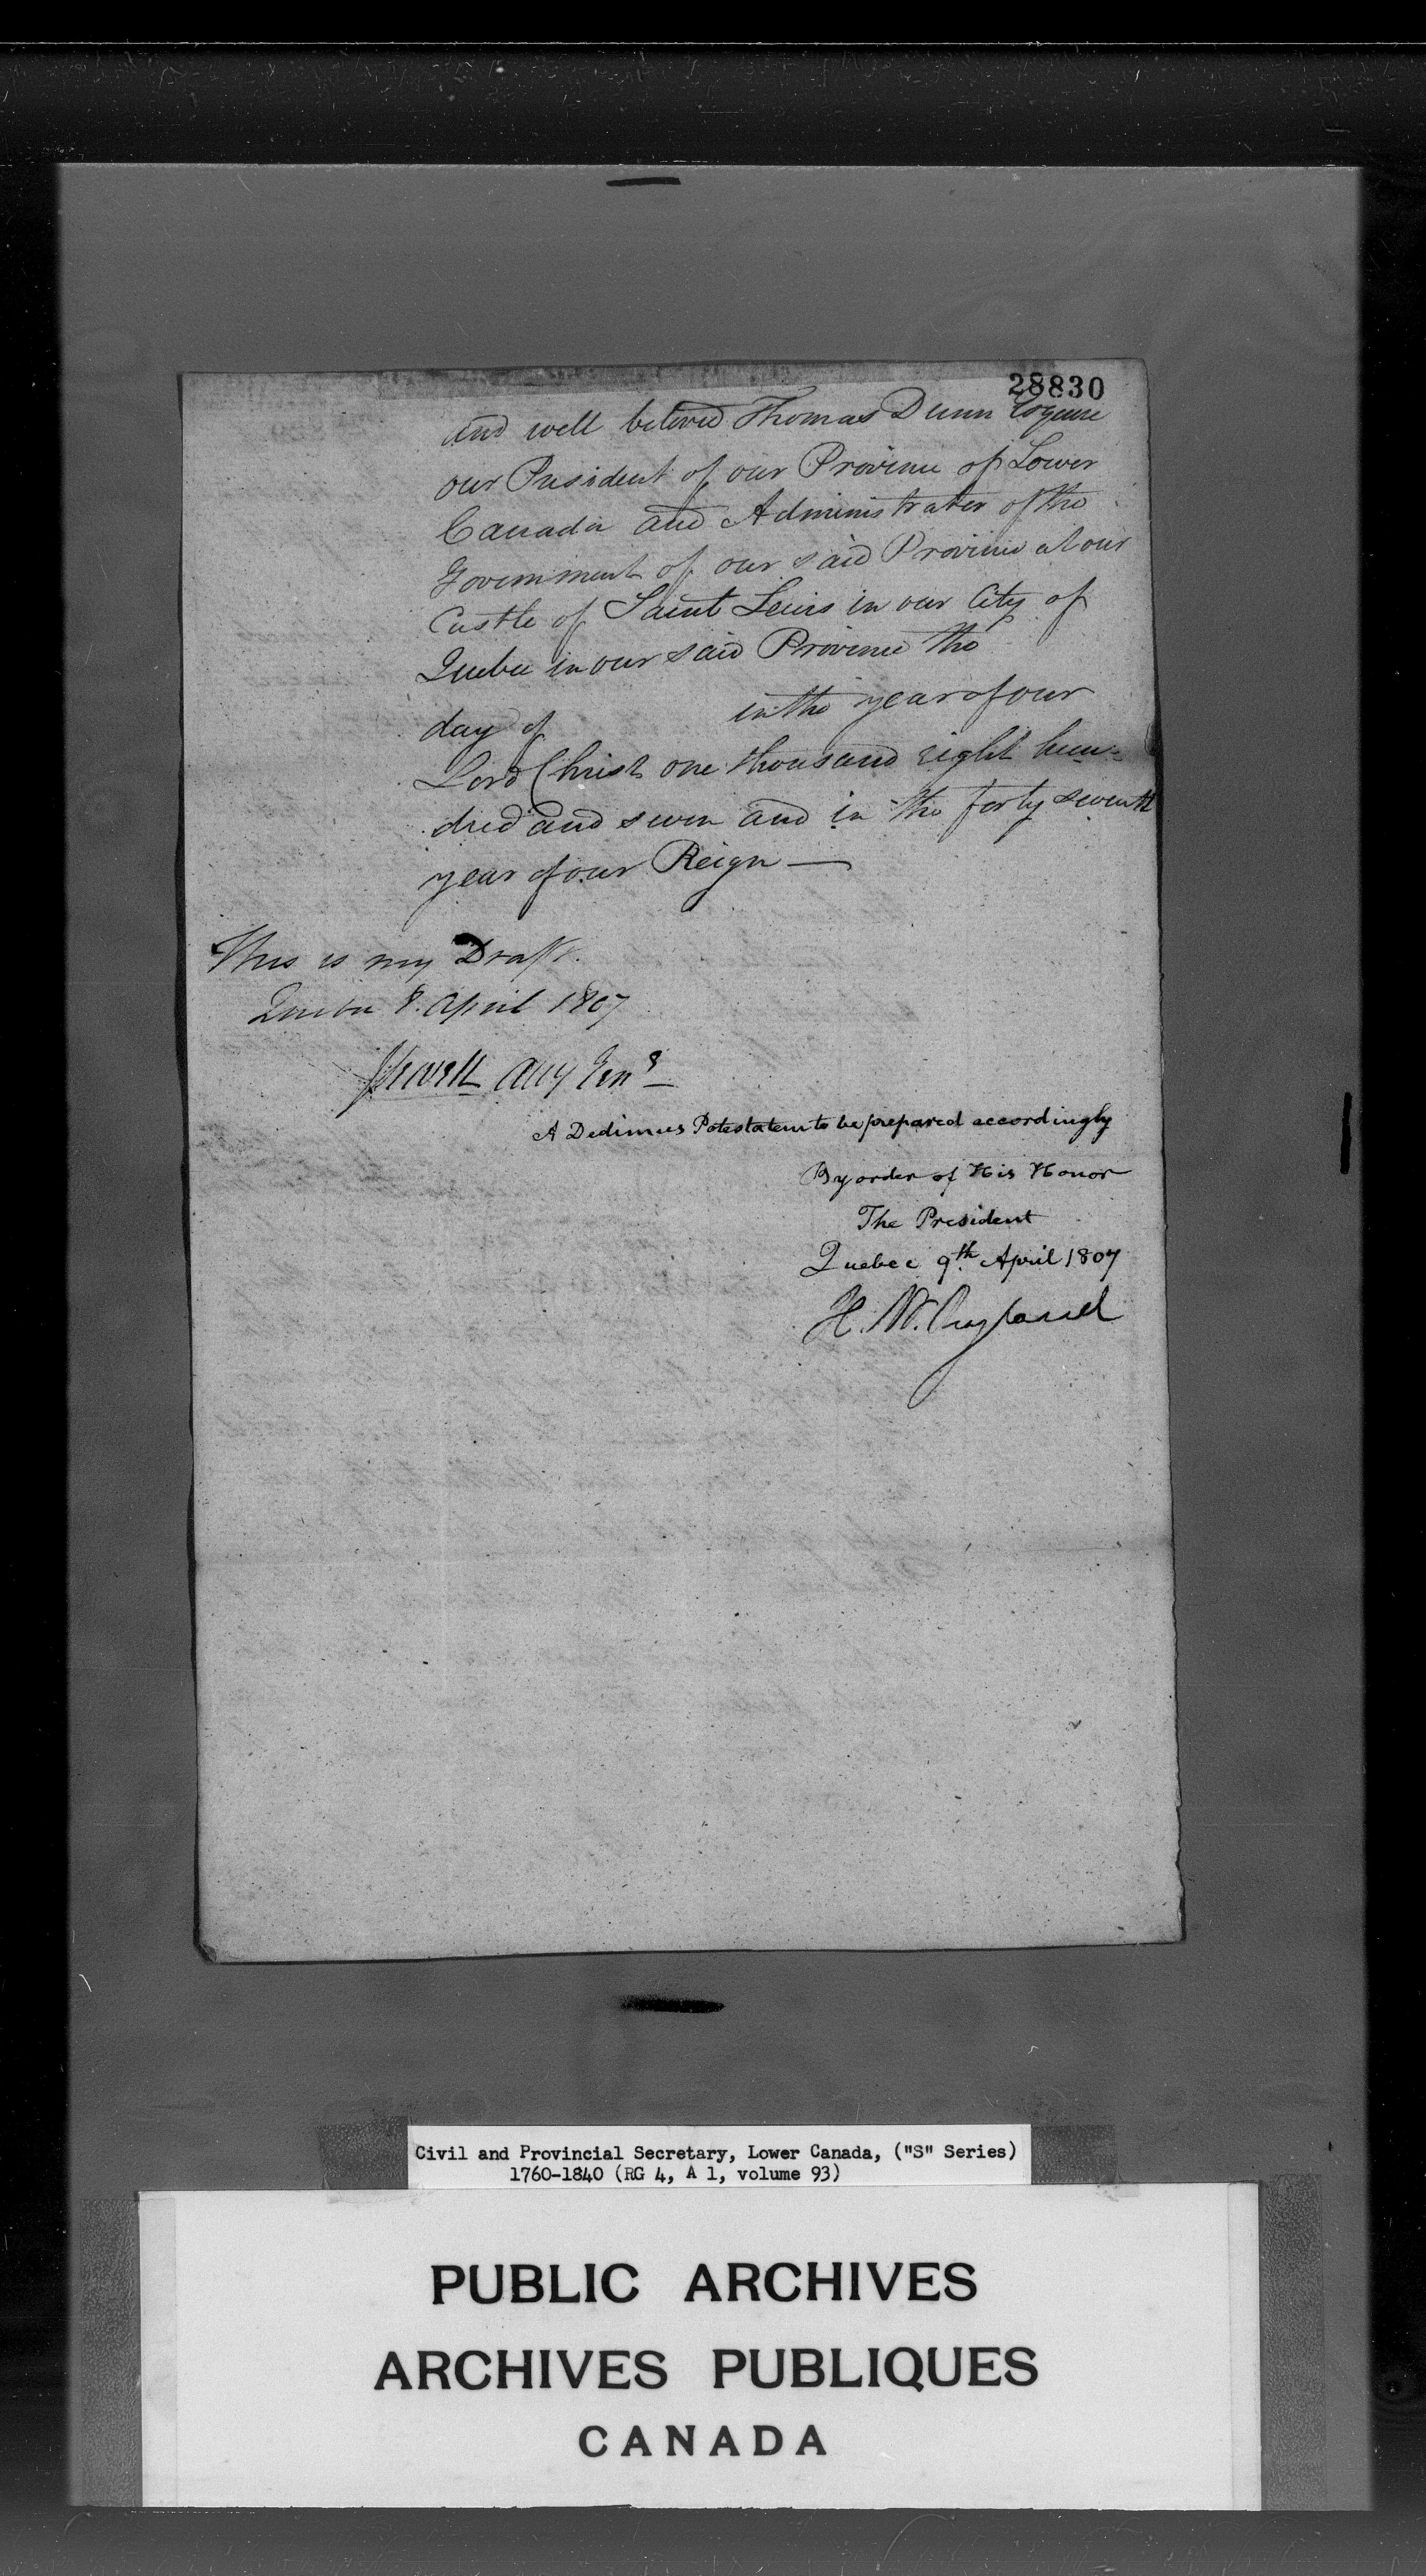 28830
and well beloved Thomas Dunn Esquire
our President of our Province of Lower
Canada and Administrator of the
Government of our said Province at our
Castle of Saint Lewis in our City of
Quebec in our said Province the
day of in the year of our
Lord Christ one thousand eight hun-
dred and seven and in the forty seventh
year of our Reign —
This is my Draft.
Quebec 8. April 1807
JSewell Atty Genl
A Dedimus Potestatem to be prepared accordingly
By order of His Honor
The President
Quebec 9th April 1807
H. W. Ryland
Civil and Provincial Secretary, Lower Canada, ("S" Series)
1760-1840 (RG 4, A 1, volume 93)
PUBLIC ARCHIVES
ARCHIVES PUBLIQUES
CANADA